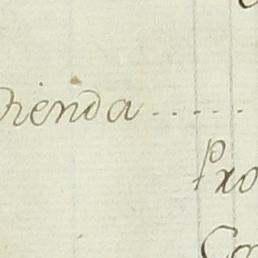 rienda ......
Pro
Co